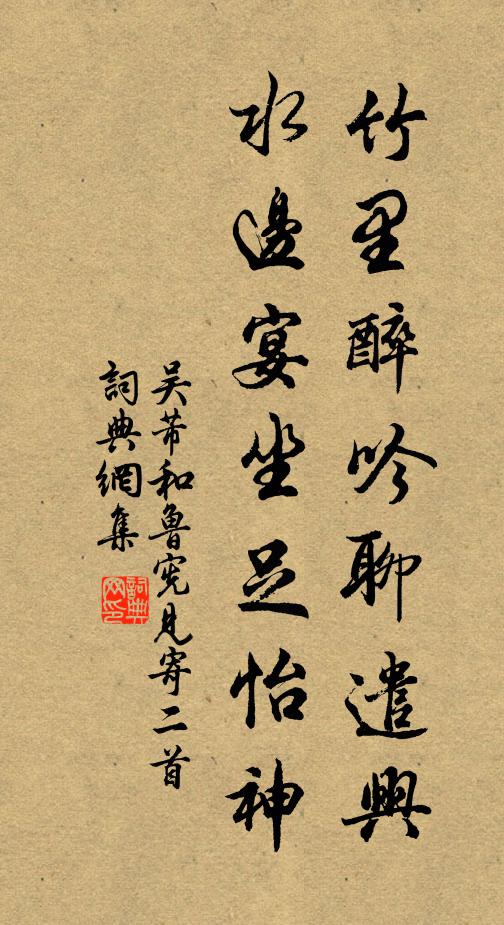 竹里醉吟聊遣興
水邊宴坐足怡神
吳芾和魯憲見寄二首
詞典網集
詞典
网印